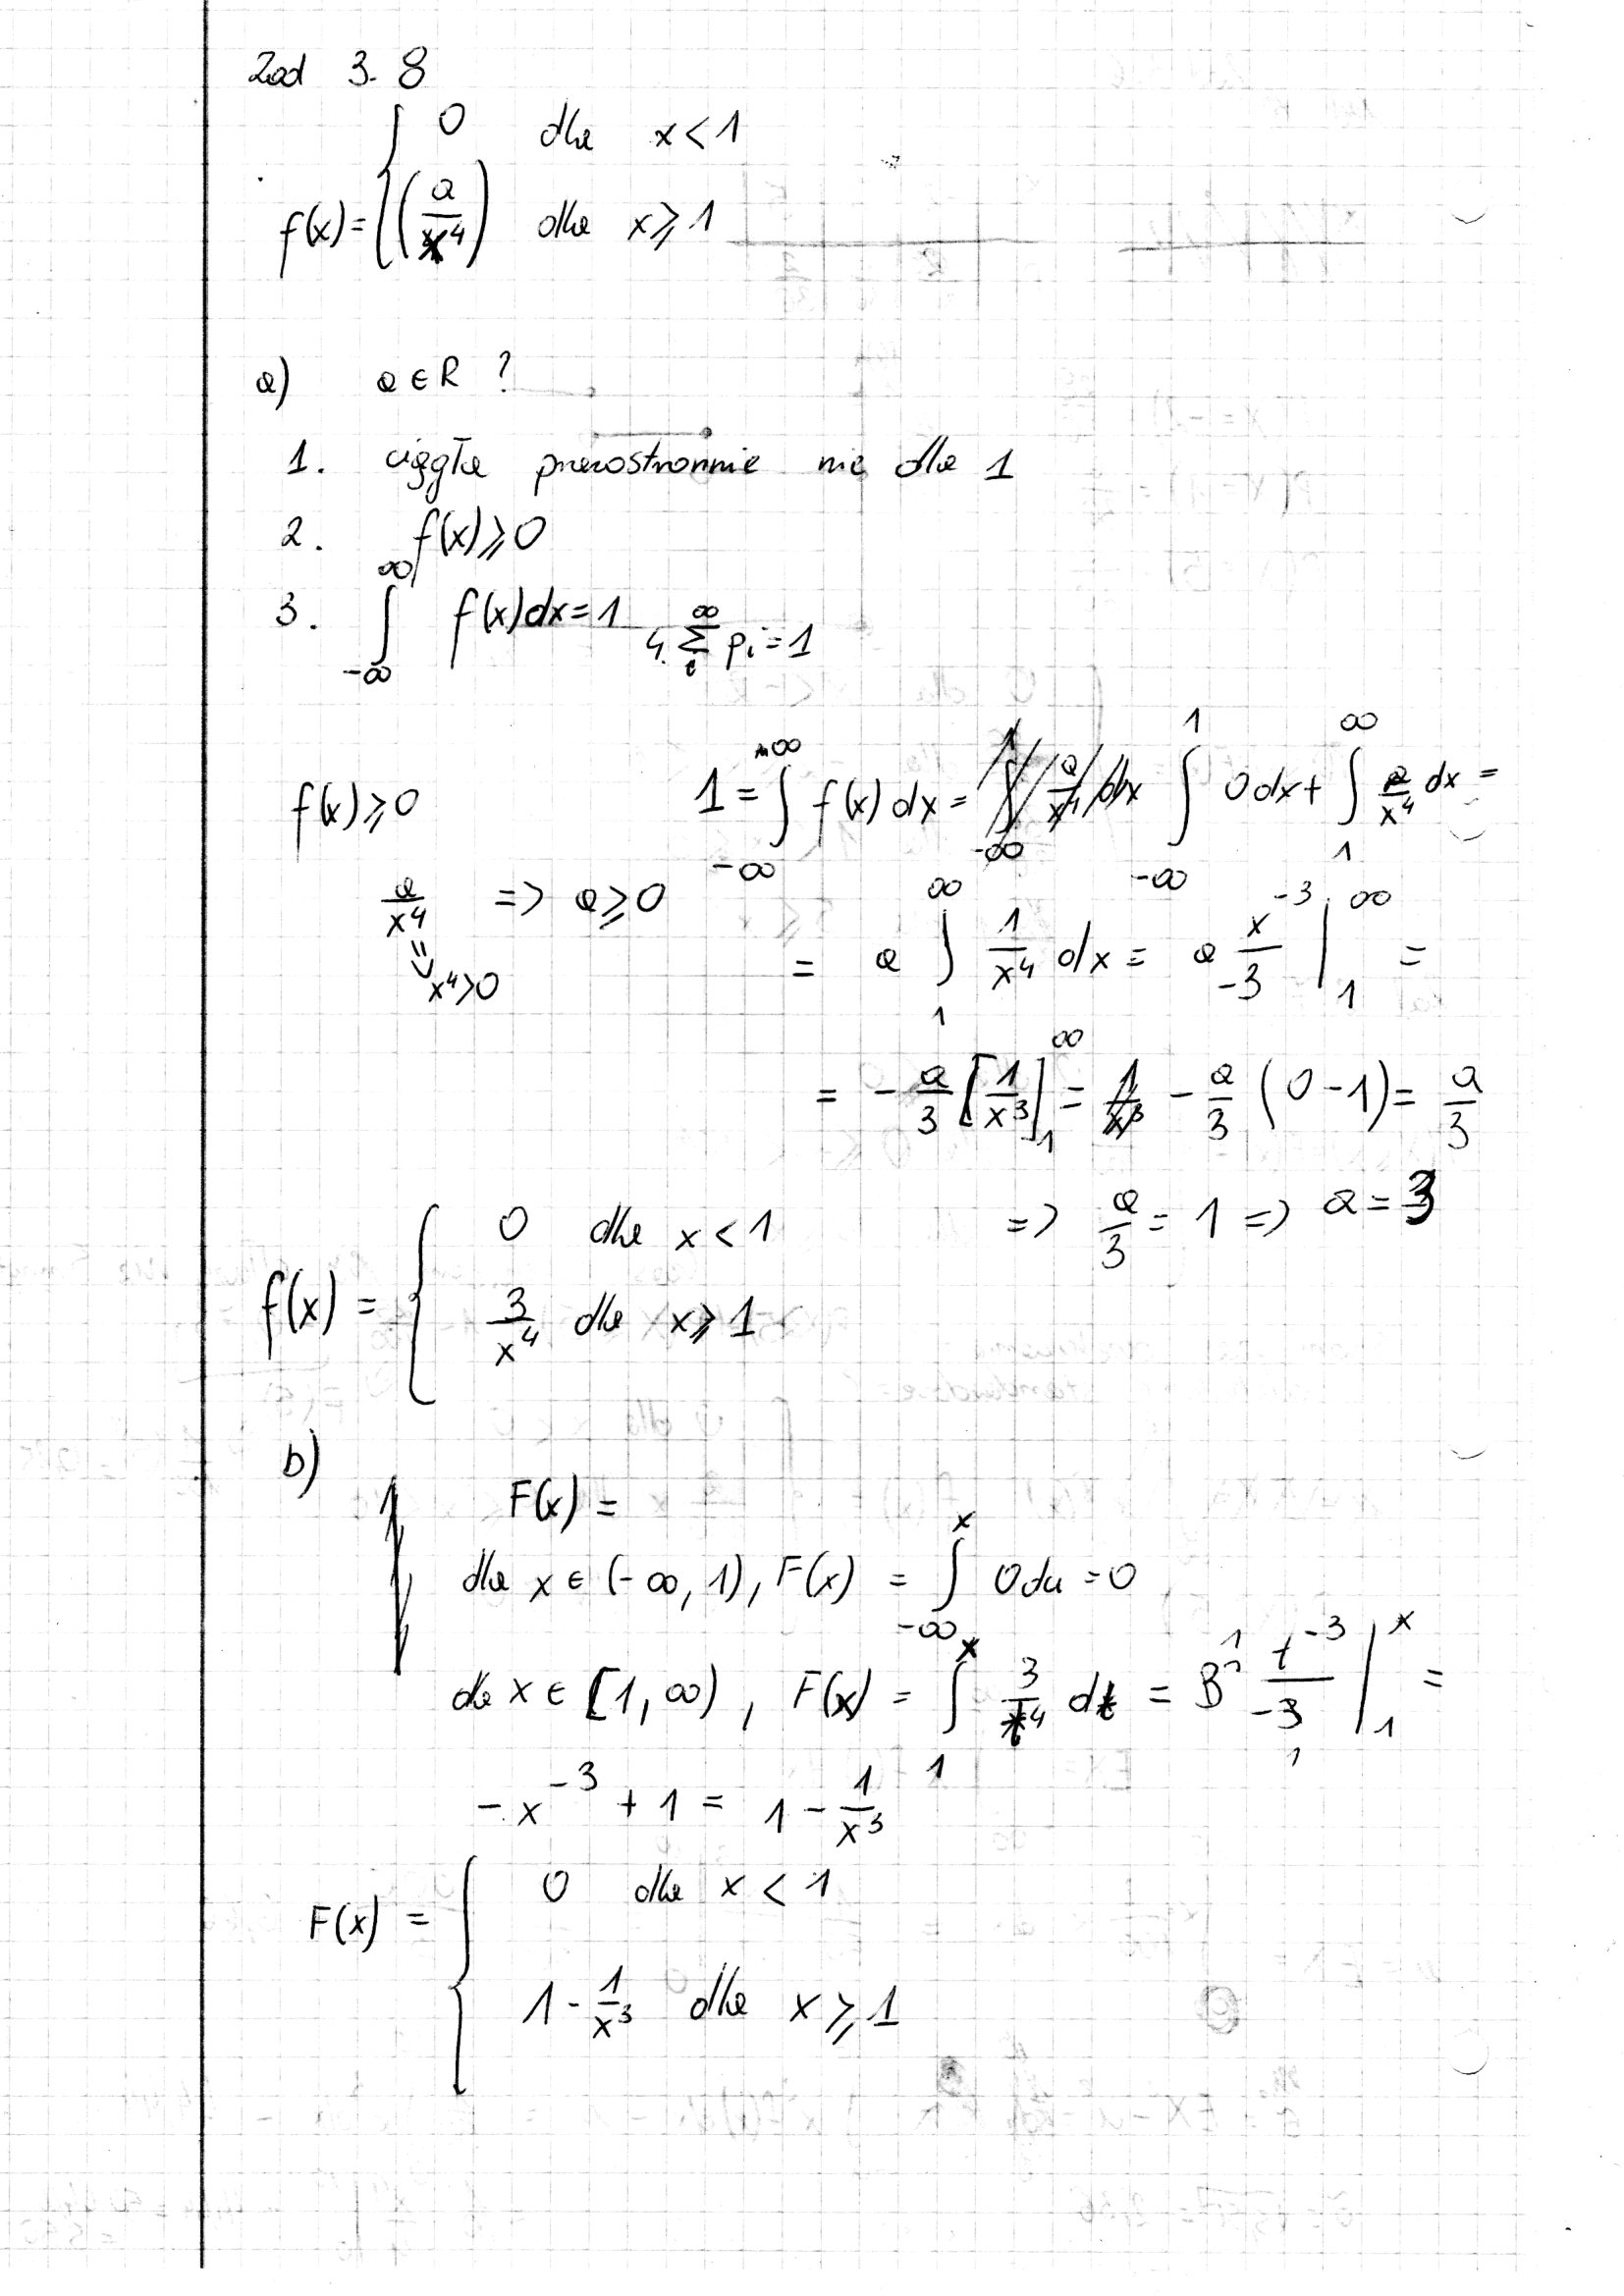 Zad 3.8
f(x) = { 0 dla x < 1
(a/x⁴) dla x ⩾ 1
a) a ∈ R ?
1. ciągła prawostronnie nie dla 1
2. f(x) ⩾ 0
3. ∫_{-∞}^{∞} f(x)dx = 1 4. Σ_{i}^{∞} pᵢ = 1
f(x) ⩾ 0 1 = ∫_{-∞}^{+∞} f(x) dx = ∫_{-∞}^{1} 0 dx + ∫_{1}^{∞} a/x⁴ dx =
a/x⁴ => a ⩾ 0 = a ∫_{1}^{∞} 1/x⁴ dx = a x⁻³/-3 |_{1}^{∞} =
x⁴ > 0
= - a/3 [1/x³]_{1}^{∞} = - a/3 (0 - 1) = a/3
=> a/3 = 1 => a = 3
f(x) = { 0 dla x < 1
3/x⁴ dla x ⩾ 1
b)
F(x) =
dla x ∈ (-∞, 1), F(x) = ∫_{-∞}^{x} 0 du = 0
dla x ∈ [1, ∞), F(x) = ∫_{1}^{x} 3/t⁴ dt = 3 t⁻³/-3 |_{1}^{x} =
- x⁻³ + 1 = 1 - 1/x³
F(x) = { 0 dla x < 1
1 - 1/x³ dla x ⩾ 1